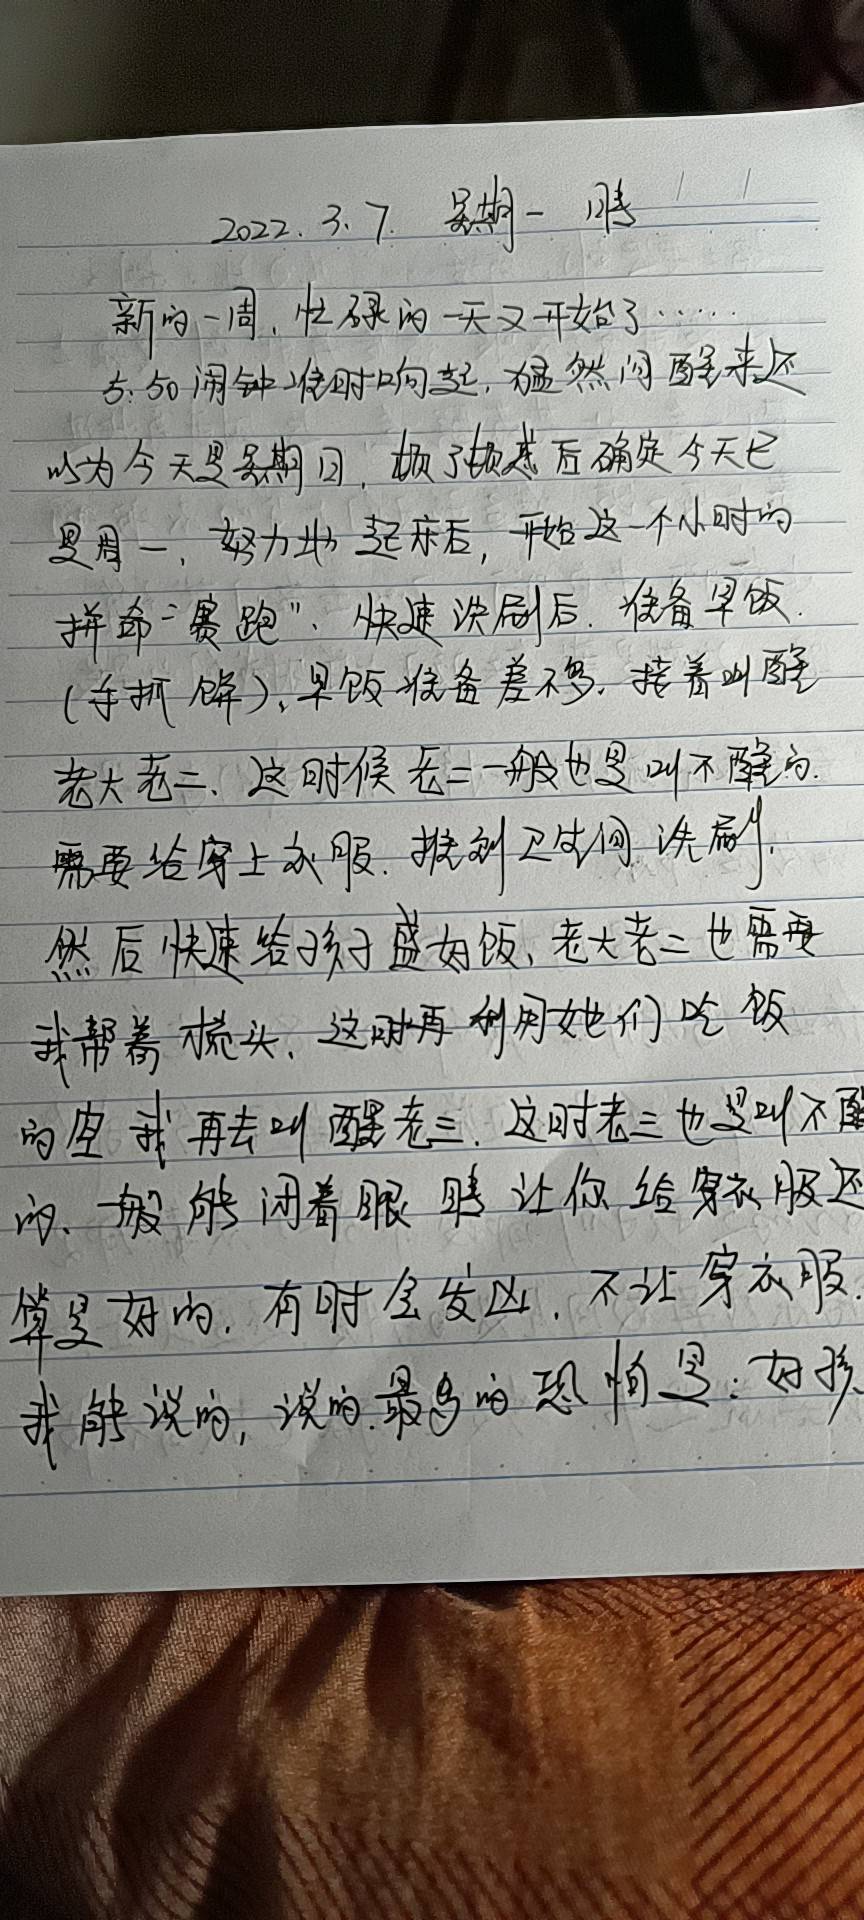 2022.3.7. 星期一 晴
新的一周,忙碌的一天又开始了……
5:50闹钟准时响起,猛然间醒来还
以为今天是星期日,顿了顿感后确定今天已
是周一,努力地起床后,开始这一个小时的
拼命“赛跑”、快速洗刷后.准备早饭.
(手抓饼),早饭准备差不多.接着叫醒
老大老二.这时候老二一般也是叫不醒的.
需要给穿上衣服.抱到卫生间洗刷.
然后快速给孩子盛好饭、老大老二也需要
我帮着梳头、这时再利用她们吃饭
的空我再去叫醒老三.这时老三也是叫不醒
的、一般能闭着眼睛让你给穿衣服还
算是好的.有时会发凶.不让穿衣服.
我能说的,说的最多的恐怕是:好孩